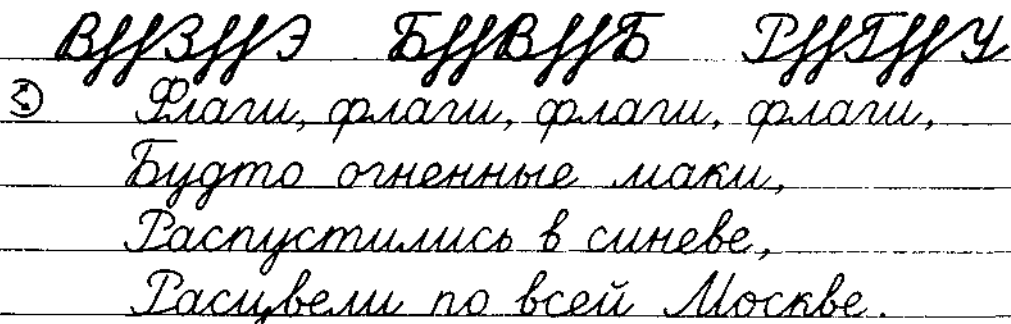 В З Э Б В Б Р Г У
Флаги, флаги, флаги, флаги,
Будто огненные маки,
Распустились в синеве,
Расцвели по всей Москве.